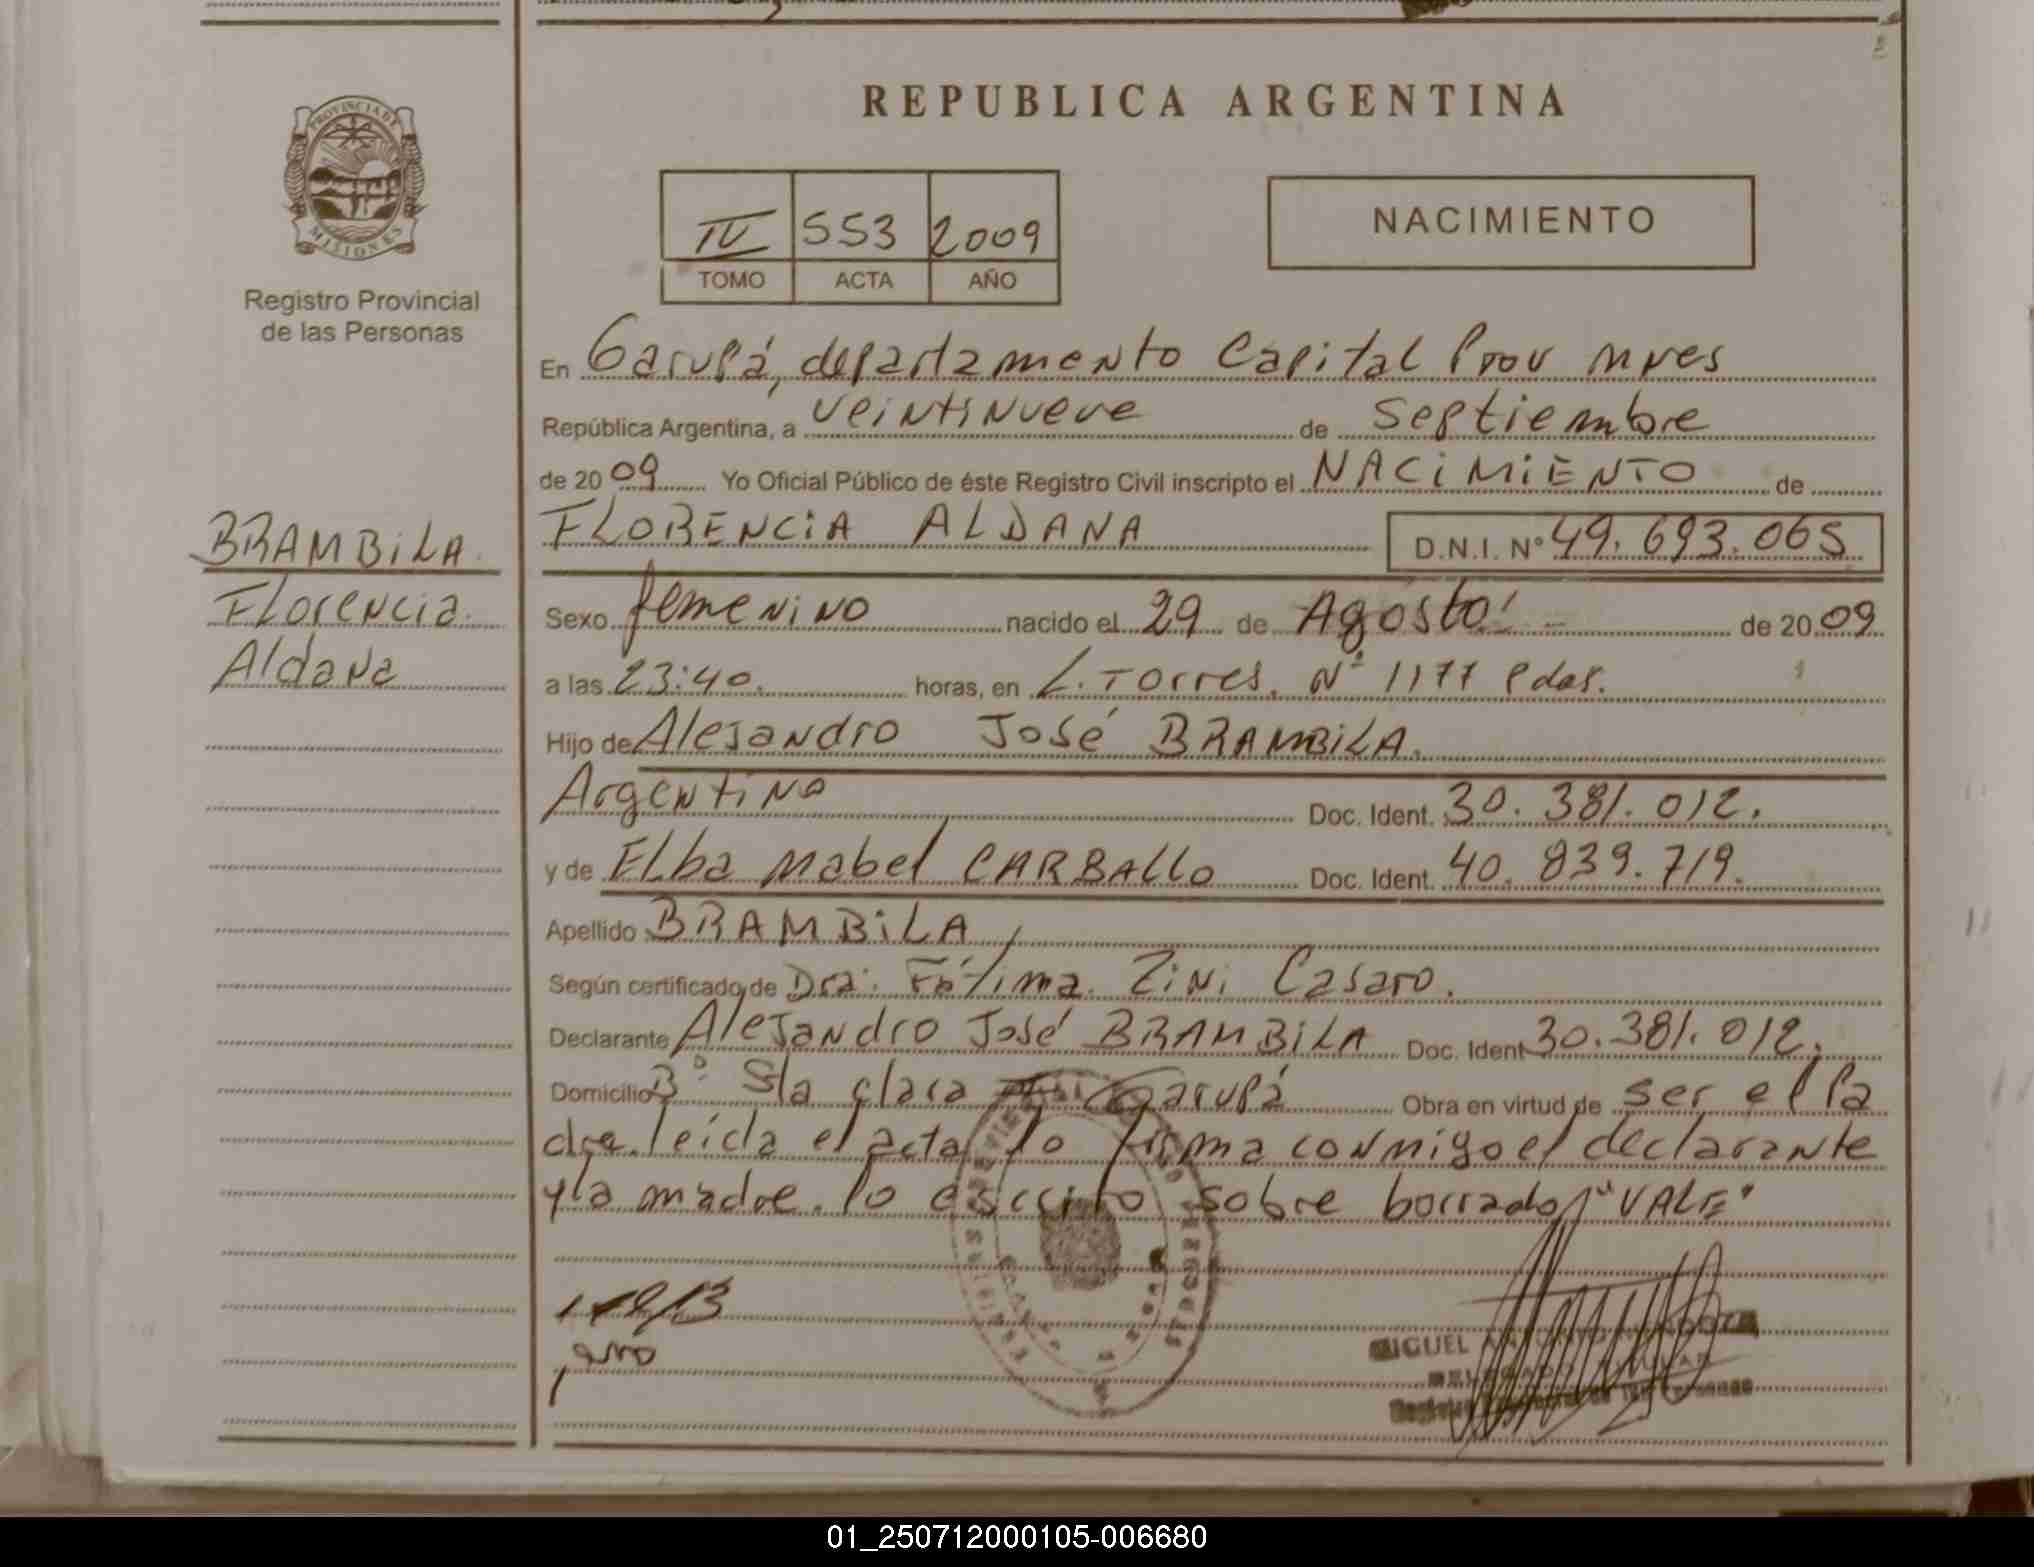 REPUBLICA ARGENTINA
PROVINCIA DE
MISIONES
Registro Provincial
de las Personas
IV 553 2009
TOMO ACTA AÑO
NACIMIENTO
En Garupá, departamento Capital Prov mnes
República Argentina, a veintinueve de septiembre
de 20 09 Yo Oficial Público de éste Registro Civil inscripto el NACIMIENTO de
FLORENCIA ALDANA D.N.I. Nº 49.693.065
BRAMBILA
Florencia
Aldana
Sexo femenino nacido el 29 de Agosto de 20 09
a las 23:40 horas, en L. Torres. Nº 1177 Pdas.
Hijo de Alejandro José BRAMBILA.
Argentino Doc. Ident. 30.381.012.
y de Elba Mabel CARBALLO Doc. Ident. 40.839.719.
Apellido BRAMBILA
Según certificado de Dra. Fátima Zini Casaro.
Declarante Alejandro José BRAMBILA Doc. Ident 30.381.012.
Domicilio Bº Sta clara Garupá Obra en virtud de ser el Pa
dre. leída el acta lo firma conmigo el declarante
y la madre. lo escrito sobre borrado "VALE"
MIGUEL ANTONIO
01_250712000105-006680